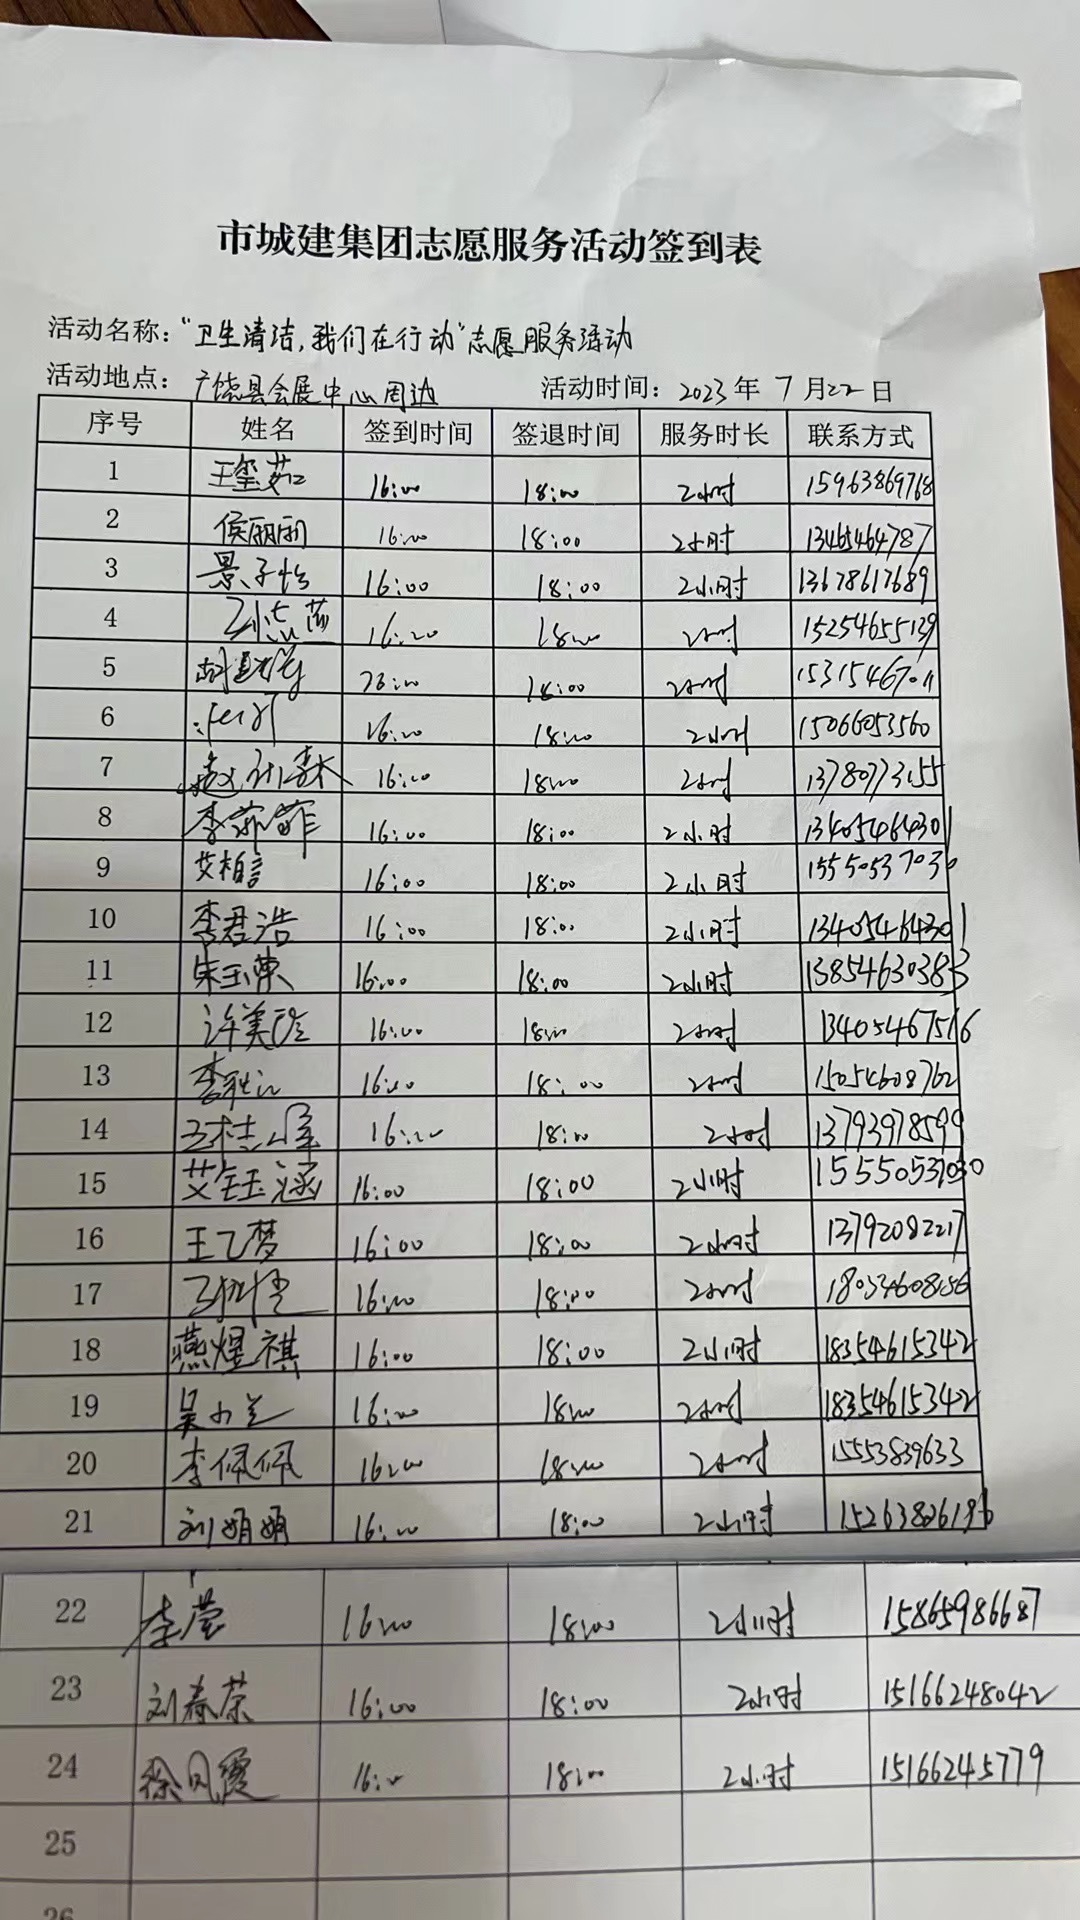 市城建集团志愿服务活动签到表
活动名称："卫生清洁,我们在行动"志愿服务活动
活动地点：广饶县会展中心周边 活动时间：2023年7月22日
序号 姓名 签到时间 签退时间 服务时长 联系方式
1 王玺茹 16:00 18:00 2小时 15963869768
2 侯丽丽 16:00 18:00 2小时 13465464787
3 景子怡 16:00 18:00 2小时 13678617689
4 16:00 18:00 2小时 15254655139
5 18:00 2小时 15315467011
6 16:00 18:00 2小时 15066053560
7 16:00 18:00 2小时 13780773155
8 李菲菲 16:00 18:00 2小时 13405464301
9 艾相言 16:00 18:00 2小时 15550537030
10 李君浩 16:00 18:00 2小时 13405464301
11 朱玉荣 16:00 18:00 2小时 13854630383
12 许美玲 16:00 18:00 2小时 13405467516
13 16:00 18:00 2小时 15054608762
14 王桂峰 16:00 18:00 2小时 13793978599
15 艾钰涵 16:00 18:00 2小时 15550537030
16 王乙梦 16:00 18:00 2小时 13792082217
17 16:00 18:00 2小时
18 燕煜祺 16:00 18:00 2小时 18354615342
19 吴小兰 16:00 18:00 2小时 18354615342
20 李佩佩 16:00 18:00 2小时 15553839633
21 刘娟娟 16:00 18:00 2小时 15263826196
22 李莹 16:00 18:00 2小时 15865986687
23 刘春荣 16:00 18:00 2小时 15166248042
24 徐凤霞 16:00 18:00 2小时 15166245779
25
26